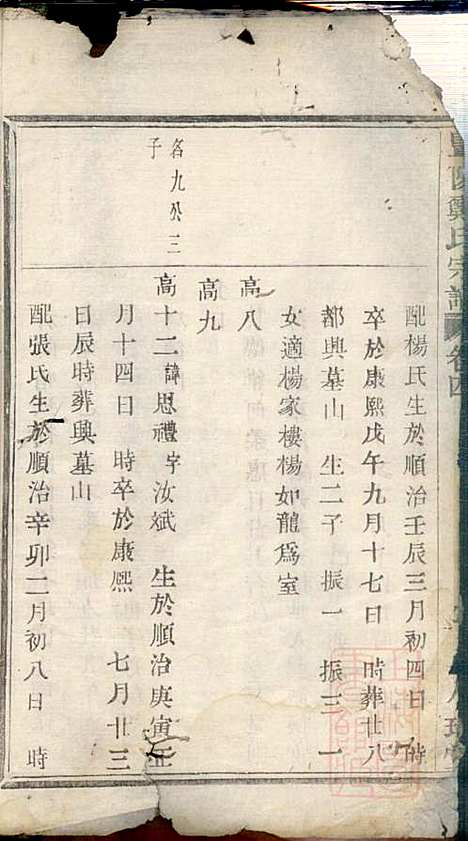 陽鄭氏宗譜 卷四
配楊氏生於順治壬辰三月初四日 時
卒於康熙戊午九月十七日 時葬廿八
都興墓山 生二子 振一 振三 一
女適楊家樓楊如龍爲室
高八
高九
名九公三
子
高十二諱思禮字汝斌 生於順治庚寅正
月十四日 時卒於康熙 七月廿三
日辰時葬興墓山
配張氏生於順治辛卯二月初八日 時